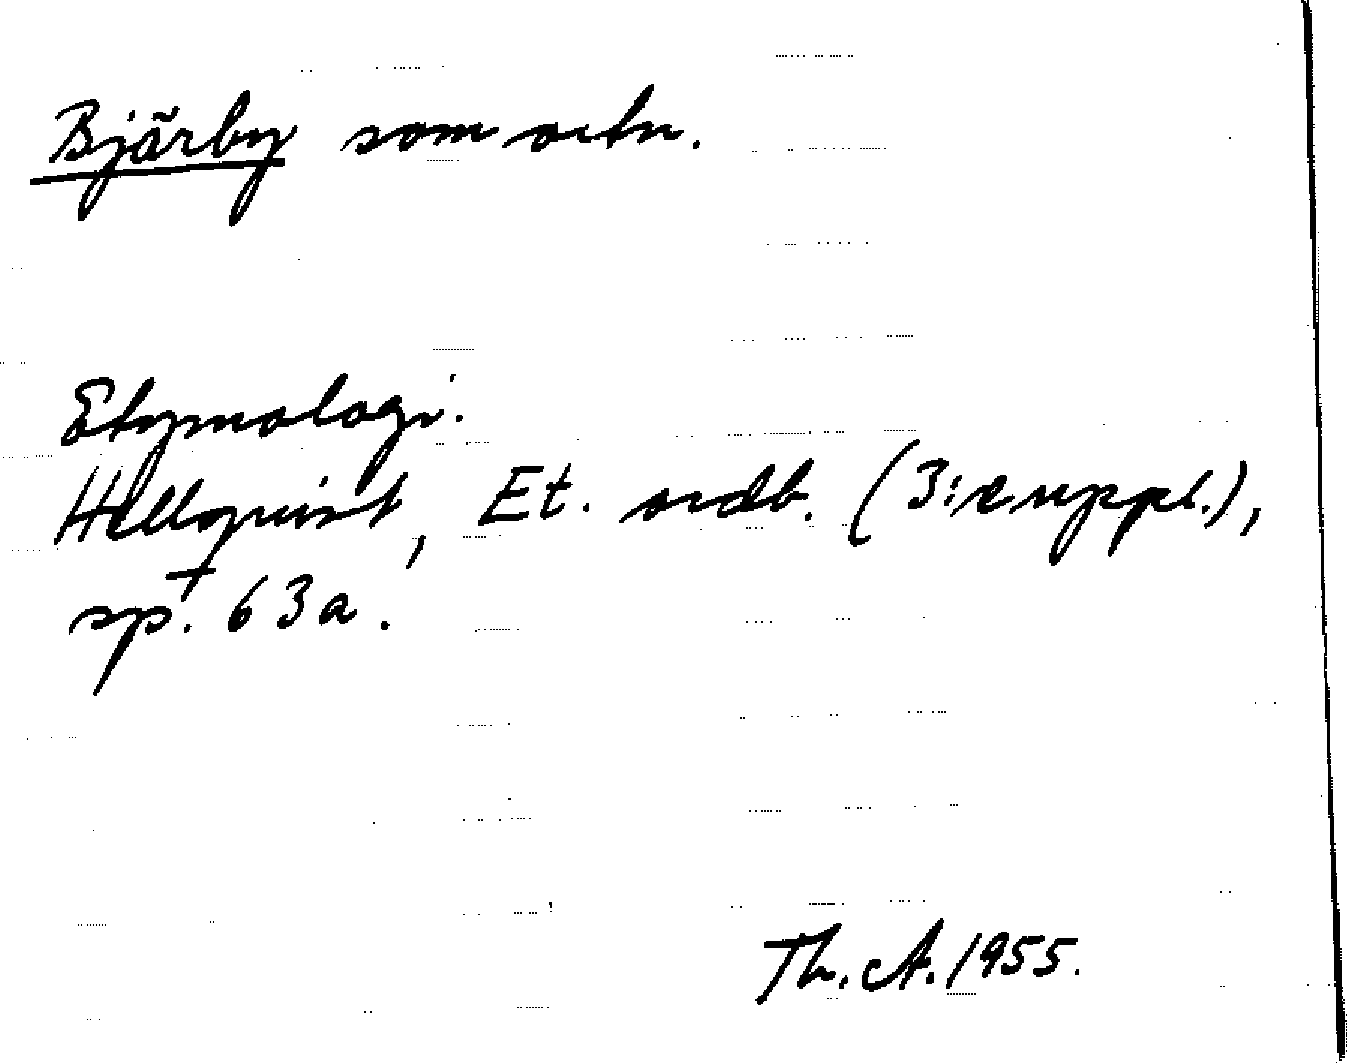 Bjärby som ortn.
Etymologi.
Hellquist, Et. ordb. (3:e uppl.),
sp. 63a.
Th. A. 1955.